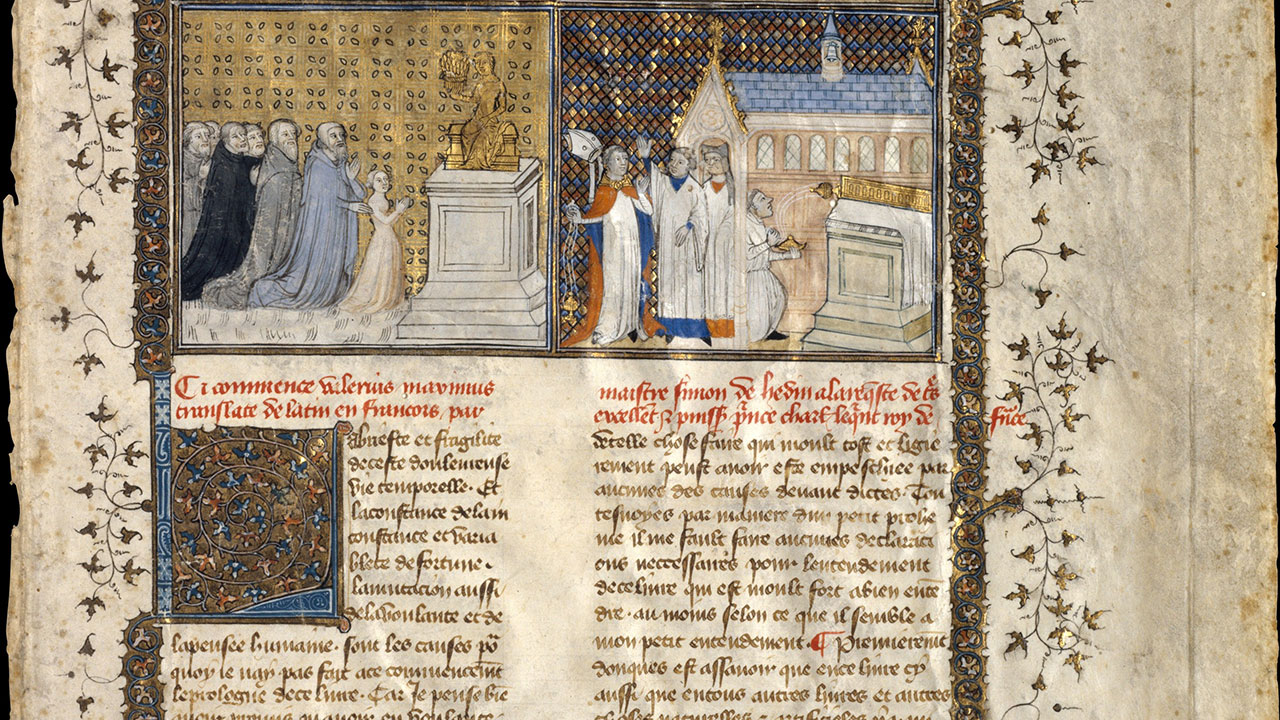 Ci commence valerius maximus
translate de latin en francois, par
maistre simon de hesdin a la requeste de tres
excellent et puissant prince charles le quint roy de France
La briefte et fragilite
de ceste douleureuse
vie temporelle. Et
la constance de la in
constance et varia
blete de fortune.
la mutacion aussi
de la voulante et de
la pensee humaine. sont les causes po
quoy je nay pas fait a ce commencement
le prologue de ce livre. Car Je pense bie
de telle chose faire qui moult tost et ligie
rement peust avoir este empeschiee par
aucunes des causes devant dictes. Tou
tesvoyes par maniere dun petit prohe
me il me fault faire aucunes declaraci
ons neccessaires pour lentendement
de ce livre qui est moult fort a bien ente
dre. au moins selon ce que il semble a
mon petit entendement. Premierement
donques est assavoir que en ce livre cy
aussi que en tous autres livres et autres
choses naturelles